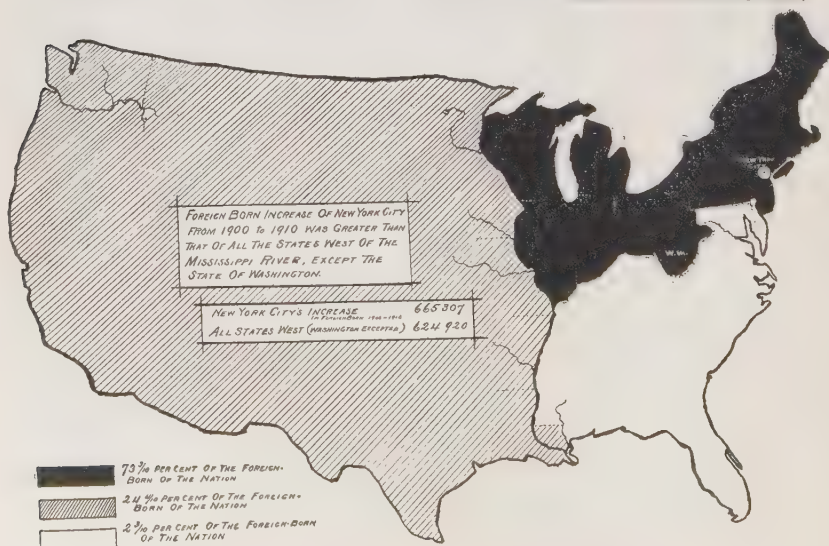 FOREIGN BORN INCREASE OF NEW YORK CITY
FROM 1900 TO 1910 WAS GREATER THAN
THAT OF ALL THE STATES WEST OF THE
MISSISSIPPI RIVER, EXCEPT THE
STATE OF WASHINGTON.
NEW YORK CITY'S INCREASE 665307
IN FOREIGN BORN 1900-1910
ALL STATES WEST (WASHINGTON EXCEPTED) 624920
73 3/10 PER CENT OF THE FOREIGN-
BORN OF THE NATION
24 4/10 PER CENT OF THE FOREIGN-
BORN OF THE NATION
2 3/10 PER CENT OF THE FOREIGN-BORN
OF THE NATION